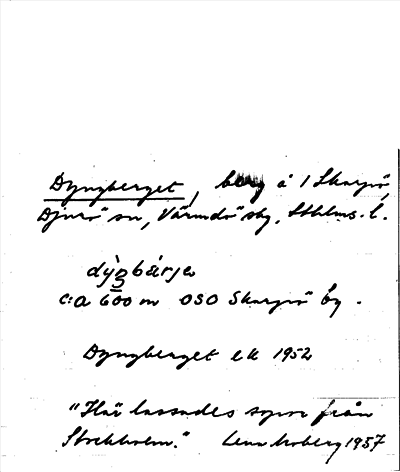 Dyngberget, berg å 1 Skarpö,
Djurö sn, Värmdö skg, Sthlms l.
dỳŋbärjə
c:a 600 m OSO Skarpö by.
Dyngberget ek 1952
"Här lassades sopor från
Stockholm." Lena Moberg 1957